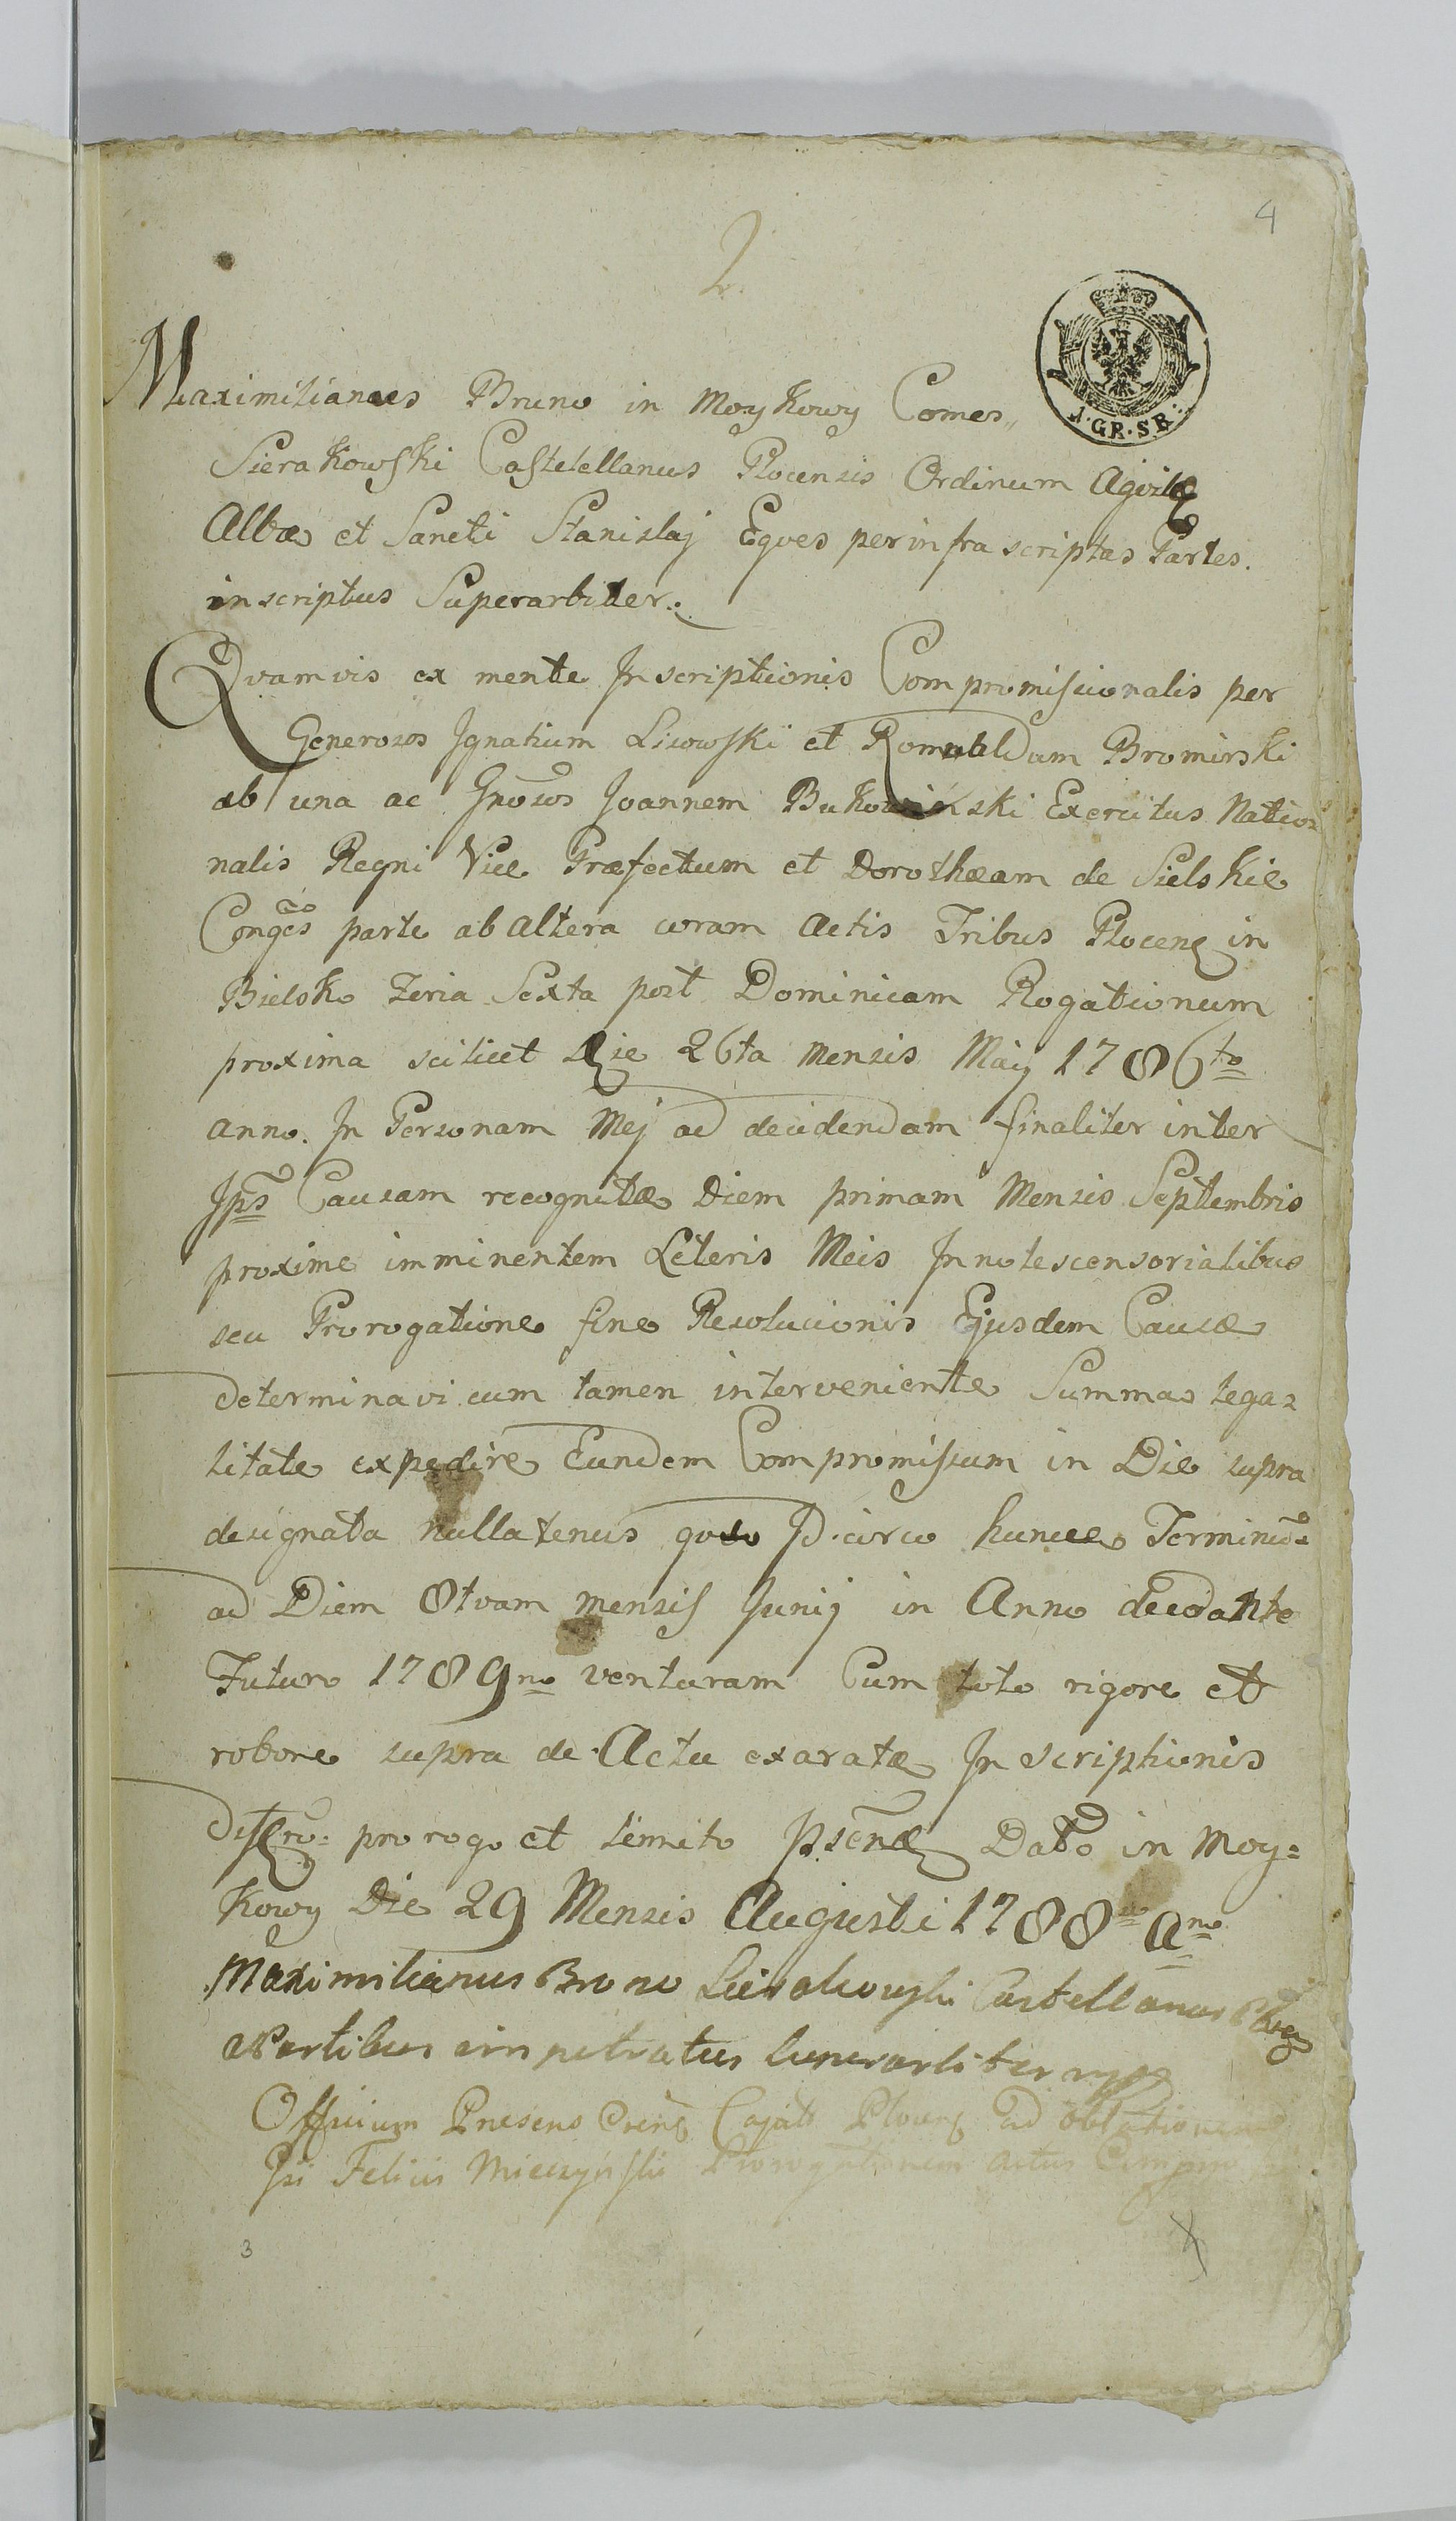 4
2.
1·GR·SR·
Maximilianus Bruno in Moykowy Comes
Sierakowski Castelellanus Plocensis Ordinum Aqvilæ
Albæ et Sancti Stanislaj Eqves per infra scriptas Partes.
inscriptus Superarbiter.
Qvamvis ex mente Inscriptionis Compromissionalis per
Generosos Ignatium Lisowski et Romualdum Bromirski
ab una ac Gnõsos Joannem Bukowinski Exercitus Natio=
nalis Regni Vice Præfectum et Dorotheam de Sielskie
Conges parte ab altera coram Actis Tribus Plocen in
Bielsko Feria Sexta post Dominicam Rogationum
proxima scilicet Die 26ta Mensis Maij 1786to
anno. In Personam Mej ad decidendam finaliter inter
Ip̃s Causam recognitæ Diem primam Mensis Septembris
proxime imminentem Leteris Meis Innotescensorialibus
seu Prorogatione fine Resolucionis Ejusdem Causæ
determinavi cum tamen interveniente Summas lega=
litate expedire Eundem Compromissum in Die supra
designata nullatenus Id circo hunce Terminũ
ad Diem 8tvam mensis Junij in Anno
Futuro 1789no venturam Cum toto rigore et
robore supra de Actu exaratæ Inscriptionis
prorogo et limito Dato in Moy=
kowy Die 29 Mensis Augusti 1788 Ano
Maximilianus Bruno Sierakowski Castellanus
a Partibus impetratus Superarbiter mpp
Officium Presens Plocen ad oblationem
Felicis Mieszynski Prorogationem Actus
3